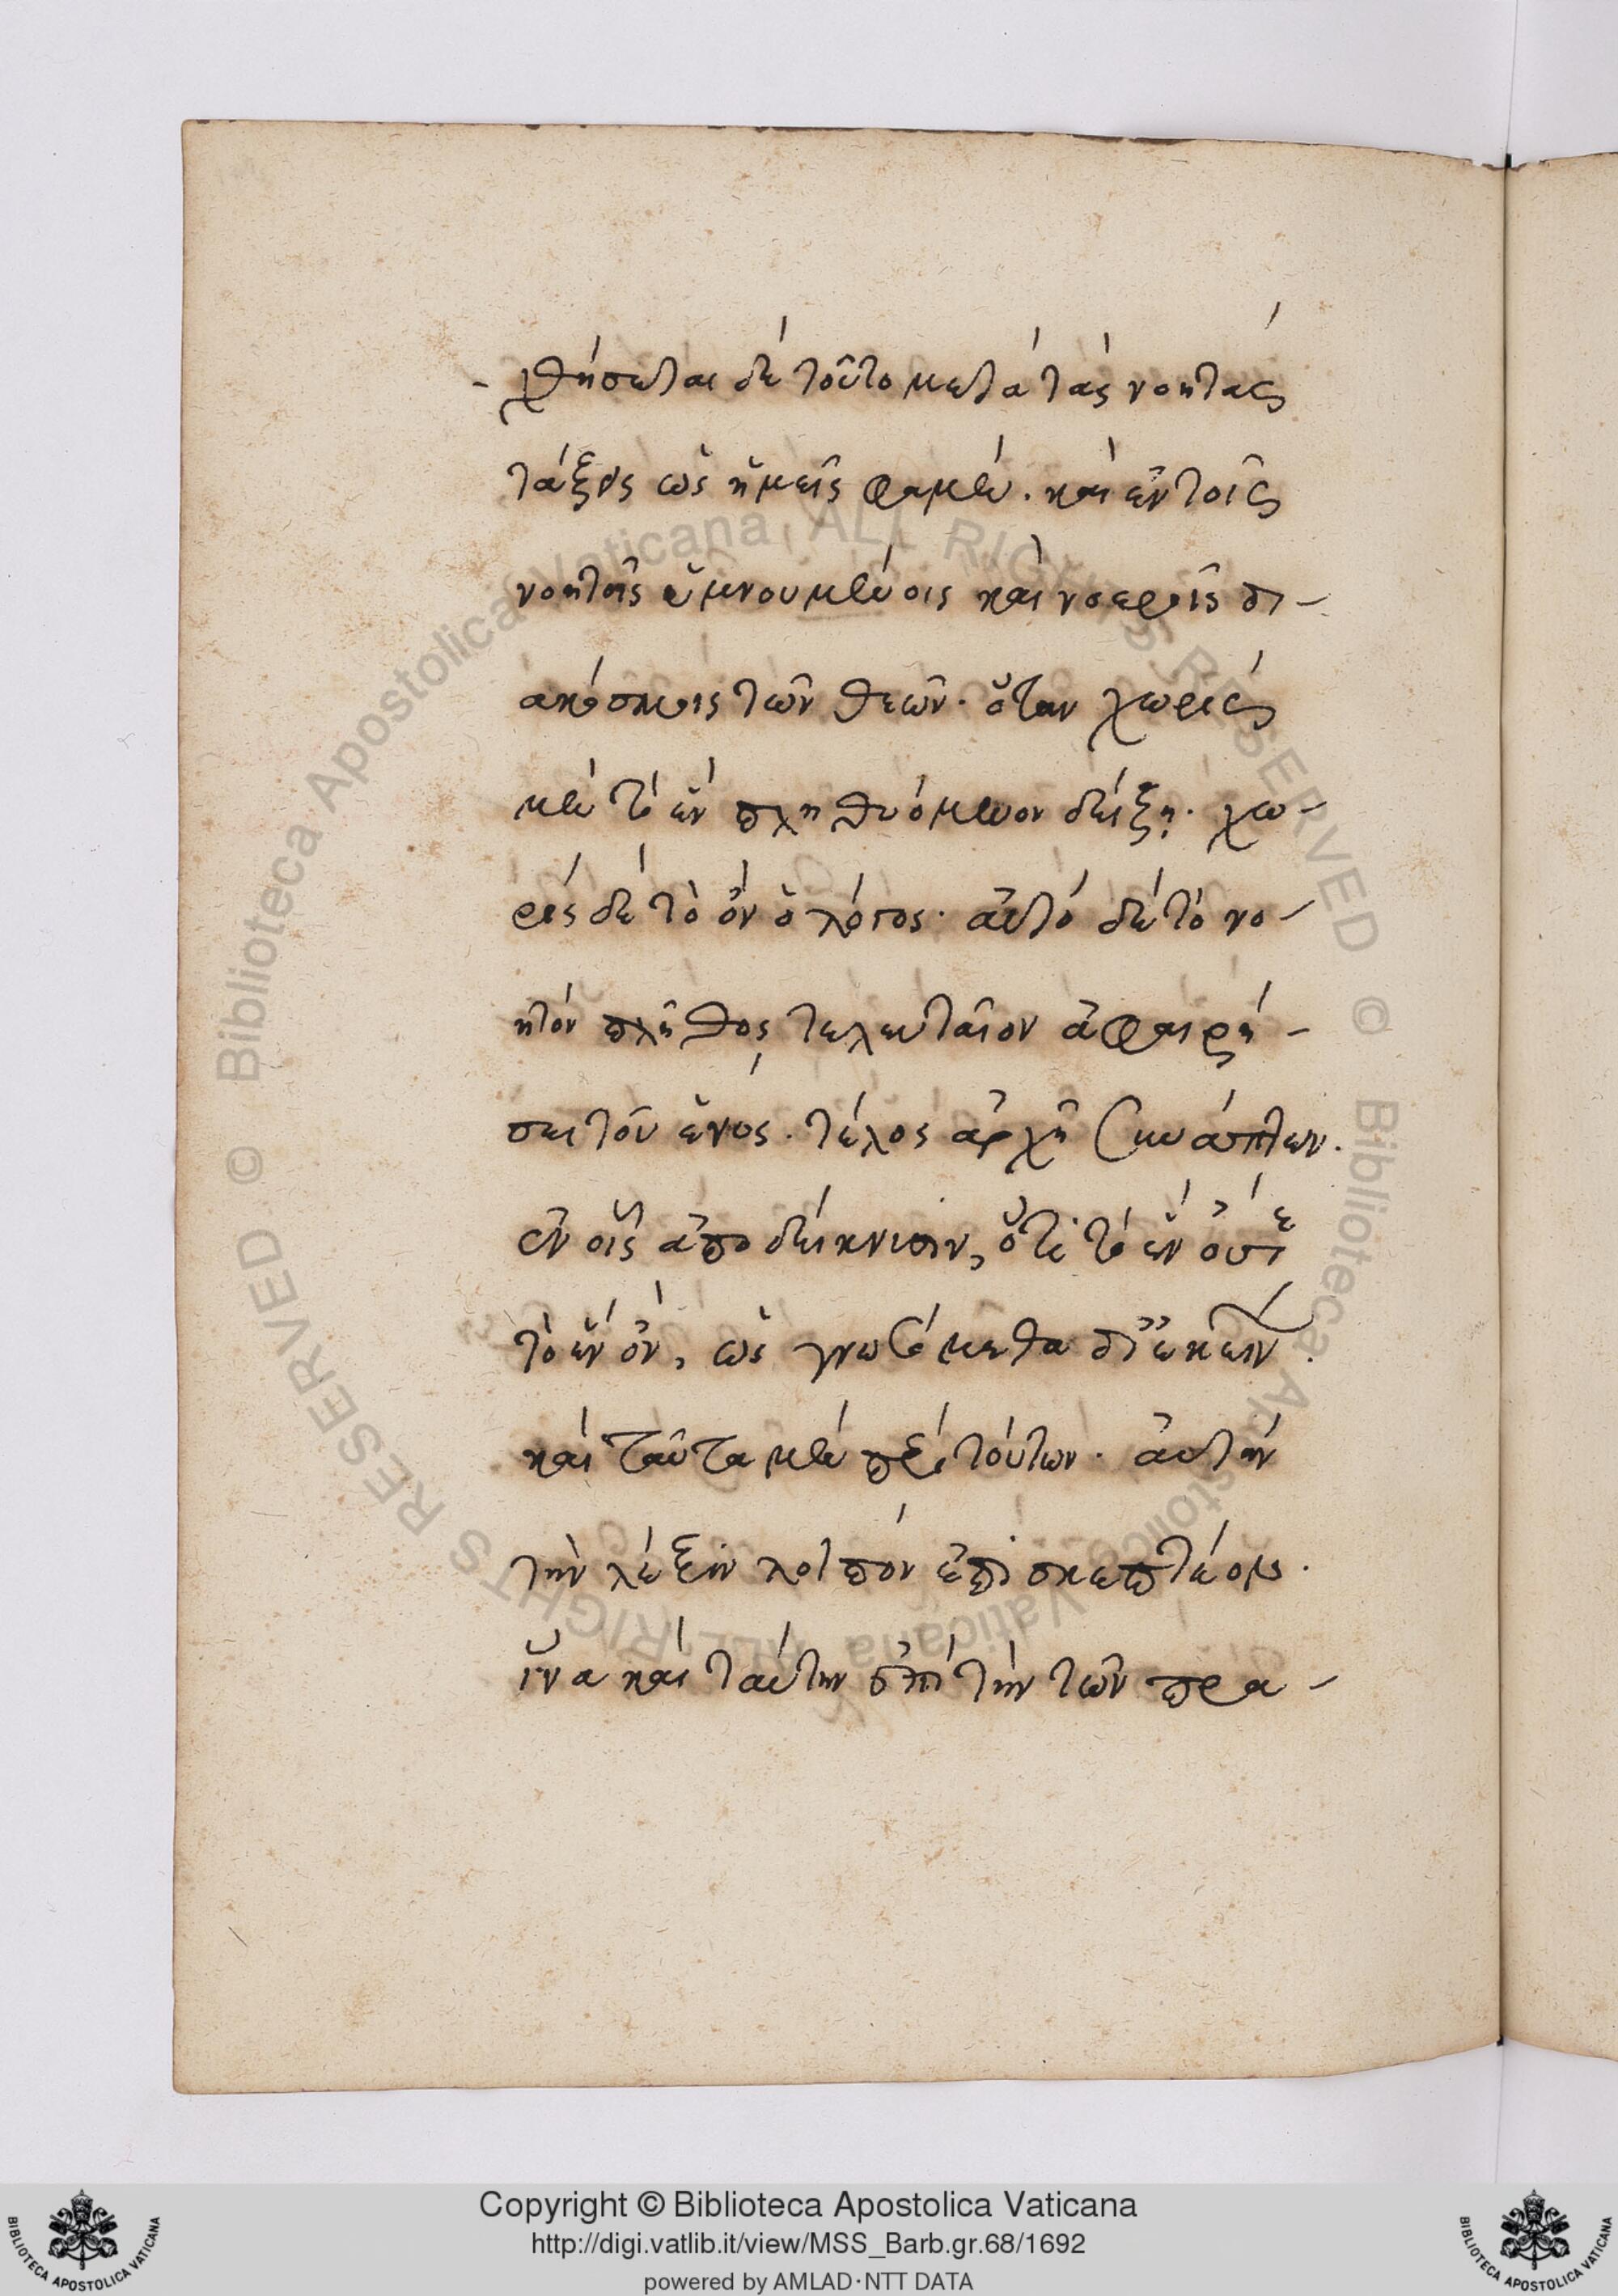 χθήσεται δὲ τοῦτο μετὰ τὰς νοητὰς
τάξεις ὡς ἡμεῖς φαμὲν. καὶ ἐν τοῖς
νοητοῖς ὑμνουμένοις καὶ νοεροῖς δι-
ακόσμοις τῶν θεῶν. ὅταν χωρὶς
μὲν τὸ ἓν πληθυόμενον δείξῃ. χω-
ρὶς δὲ τὸ ὂν ὁ λόγος. αὐτὸ δὲ τὸ νο-
ητὸν πλῆθος τελευταῖον ἀφαιρή-
σει τοῦ ἑνὸς. τέλος ἀρχῇ συνάπτων.
ἐν οἷς ἀποδείκνυσιν, ὅτι τὸ ἓν οὐδὲ
τὸ ἓν ὂν, ὡς γνωσόμεθα δι' ἐκείνων.
καὶ ταῦτα μὲν περὶ τούτων. αὐτὴν
τὴν λέξιν λοιπὸν ἐπισκεπτέον.
ἵνα καὶ ταύτην ἐπὶ τὴν τῶν πρα-
Copyright © Biblioteca Apostolica Vaticana
http://digi.vatlib.it/view/MSS_Barb.gr.68/1692
powered by AMLAD·NTT DATA
BIBLIOTECA APOSTOLICA VATICANA
BIBLIOTECA APOSTOLICA VATICANA
© Biblioteca Apostolica Vaticana ALL RIGHTS RESERVED
© Biblioteca Apostolica Vaticana ALL RIGHTS RESERVED